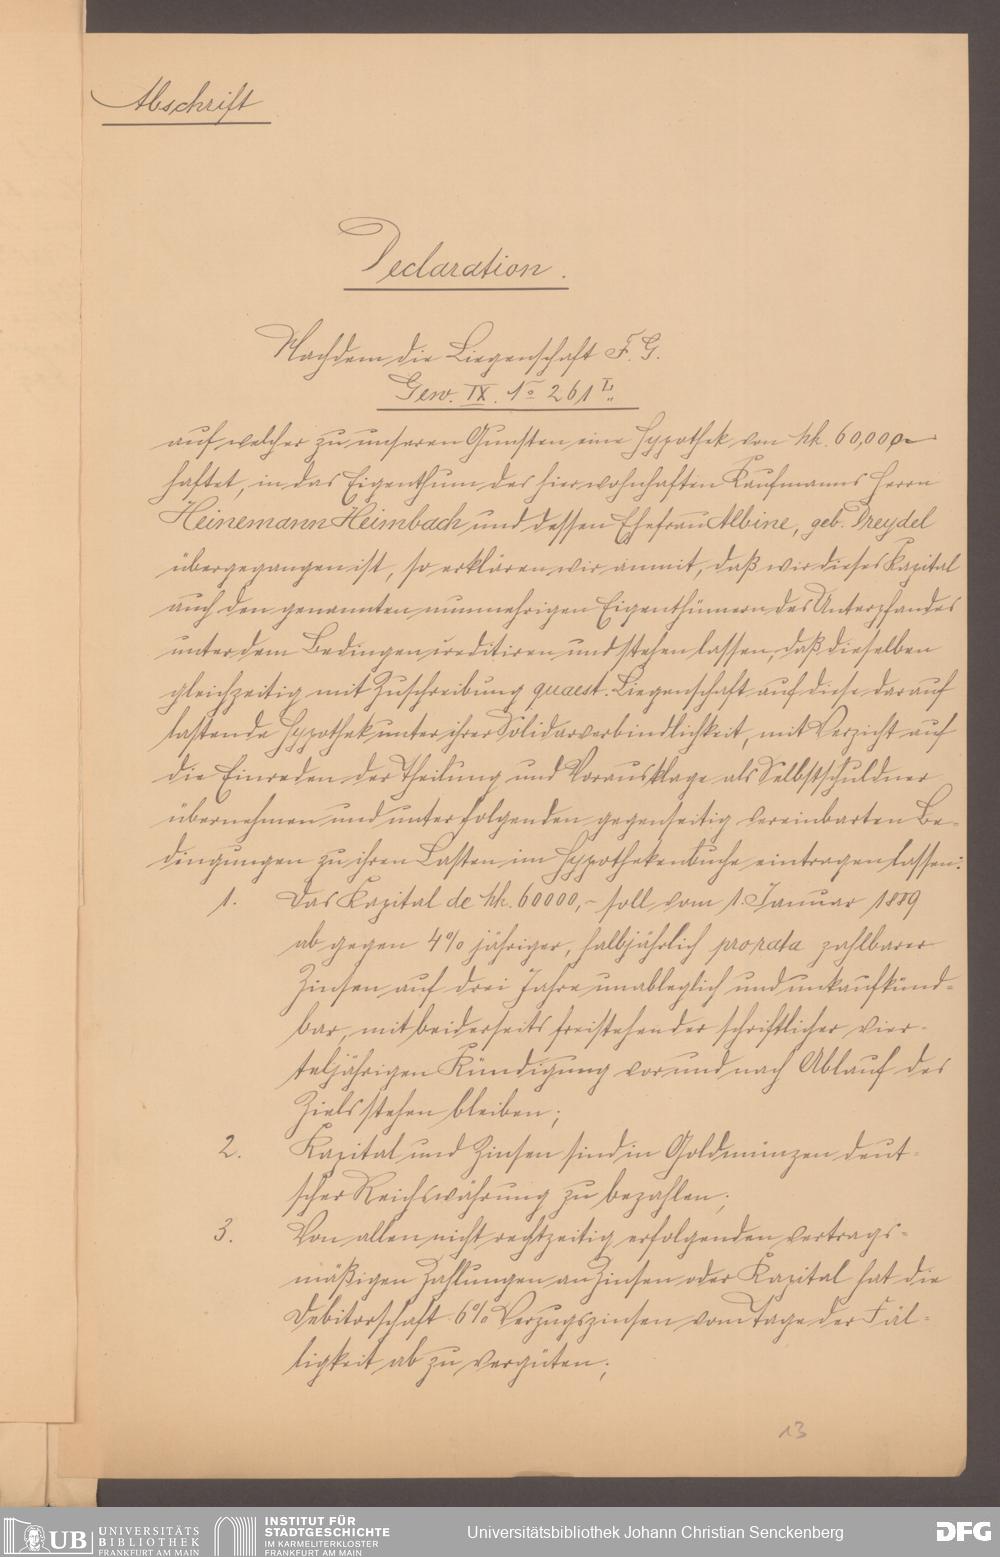 Abschrift
Declaration.
Nachdem die Liegenschaft F. G.
Gew. IX. No 261
auf welcher zu unseren Gunsten eine Hypothek von Mk. 60,000.–
haftet, in das Eigenthum des hier wohnhaften Kaufmanns Herrn
Heinemann Heimbach und dessen Ehefrau Albine, geb. Dreydel
übergegangen ist, so erklären wir anmit, daß wir dieses Kapital
auch den genannten nunmehrigen Eigenthümern des Unterpfandes
unter dem Bedingen creditiren und stehen lassen, daß dieselben
gleichzeitig mit Zuschreibung quaest. Liegenschaft auf diese darauf
lastende Hypothek unter ihrer Solidarverbindlichkeit, mit Verzicht auf
die Einreden der Theilung und Vorausklage als Selbstschuldner
übernehmen und unter folgenden gegenseitig vereinbarten Be-
dingungen zu ihren Lasten im Hypothekenbuche eintragen lassen:
1. Das Kapital de Mk. 60000,– soll vom 1. Januar 1889
ab gegen 4% jähriger, halbjährlich pro rata zahlbarer
Zinsen auf drei Jahre unableglich und unkaufkünd-
bar, mit beiderseits freistehender schriftlicher vier-
teljährigen Kündigung vor und nach Ablauf des
Ziels stehen bleiben;
2. Kapital und Zinsen sind in Goldmünzen deut-
scher Reichswährung zu bezahlen;
3. Von allen nicht rechtzeitig erfolgenden vertrags-
mäßigen Zahlungen an Zinsen oder Kapital hat die
Debitorschaft 6% Verzugszinsen vom Tage der Fäl-
ligkeit ab zu vergüten;
13
UB UNIVERSITÄTS
BIBLIOTHEK
FRANKFURT AM MAIN
INSTITUT FÜR
STADTGESCHICHTE
IM KARMELITERKLOSTER
FRANKFURT AM MAIN
Universitätsbibliothek Johann Christian Senckenberg
DFG